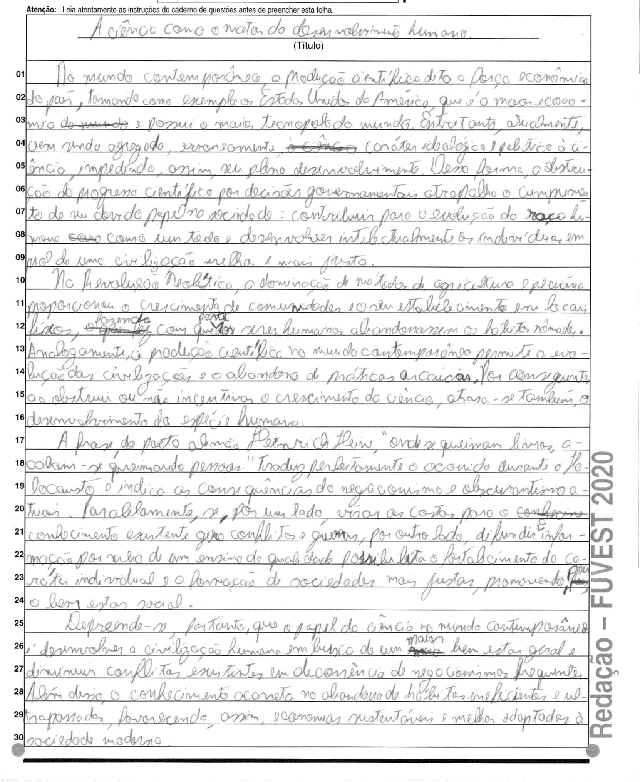 Atenção: Leia atentamente as instruções do caderno de questões antes de preencher esta folha.
A ciência como o motor do desenvolvimento humano.
(Título)
01 No mundo contemporâneo a produção científica dita a força econômica
02 do país, tomando como exemplo os Estados Unidos da América, que é a maior econo-
03 mia do mundo e possui o maior tecnopolo do mundo. Entretanto, atualmente,
04 vem sendo agregado, erroneamente, à ciência caráter ideológico e político à ci-
05 ência, impedindo, assim, seu pleno desenvolvimento. Dessa forma, a obstru-
06 ção do progresso científico por decisões governamentais atrapalha o cumprimen-
07 to de seu papel na sociedade: contribuir para a evolução da raça hu-
08 mana como um todo e desenvolver intelectualmente os indivíduos em
09 prol de uma civilização melhor e mais justa.
10 Na Revolução Neolítica, a dominação de métodos de agricultura e pecuária
11 proporcionou o crescimento de comunidades e o seu estabelecimento em locais
12 fixos, fazendo com que os seres humanos abandonassem os hábitos nômades.
13 Analogamente, a produção científica no mundo contemporâneo permite a evo-
14 lução das civilizações e o abandono de práticas arcaicas. Por conseguinte
15 ao obstruir ou não incentivar o crescimento da ciência, atrasa-se também, o
16 desenvolvimento da espécie humana.
17 A frase do poeta alemão Heinrich Heine, "onde se queimam livros, a-
18 cabam-se queimando pessoas." Traduz perfeitamente o ocorrido durante o Ho-
19 locausto e indica as consequências do negacionismo e obscurantismo a-
20 tuais. Paralelamente, se, por um lado, virar as costas para o conhecim
21 conhecimento existente gera conflitos e guerras, por outro lado, difundir infor-
22 mação por meio de um ensino de qualidade possibilita o fortalecimento do ca-
23 ráter individual e a formação de sociedades mais justas, promovendo
24 o bem estar social.
25 Depreende-se portanto, que o papel da ciência no mundo contemporâneo
26 é desenvolver a civilização humana em busca de um maior bem estar geral e
27 diminuir conflitos existentes em decorrência de negacionismos frequentes
28 Além disso, o conhecimento acarreta no abandono de hábitos ineficientes e ul-
29 trapassados, favorecendo, assim, economias sustentáveis e melhor adaptadas à
30 sociedade moderna.
Redação – FUVEST 2020